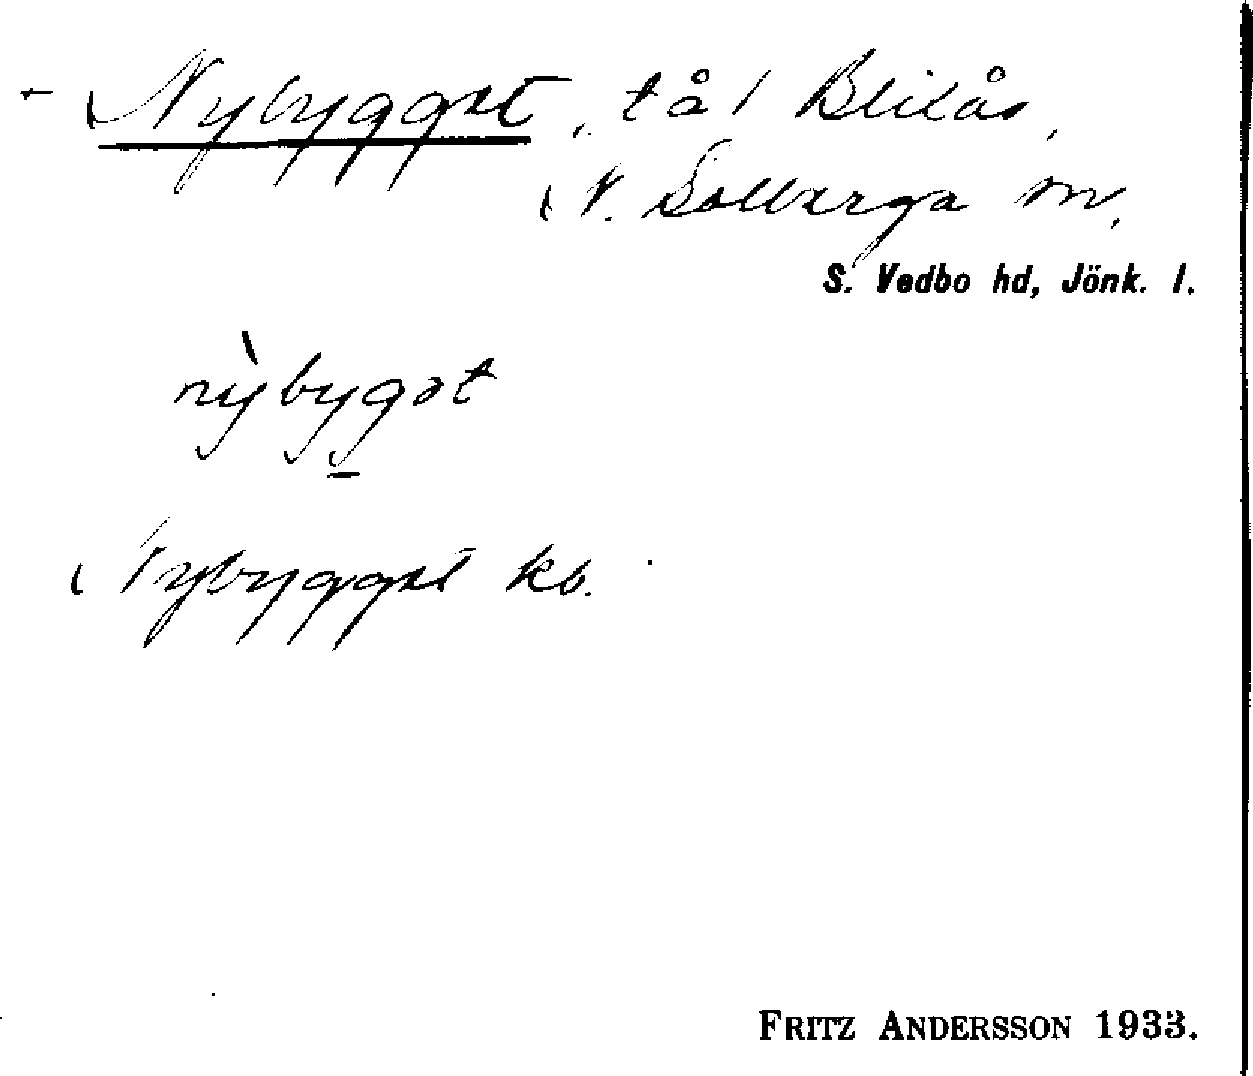 - Nybygget, tå / Blixås,
N. Solberga sn,
S. Vedbo hd, Jönk. l.
nỳbygət
Nybygget kb.
FRITZ ANDERSSON 1933.